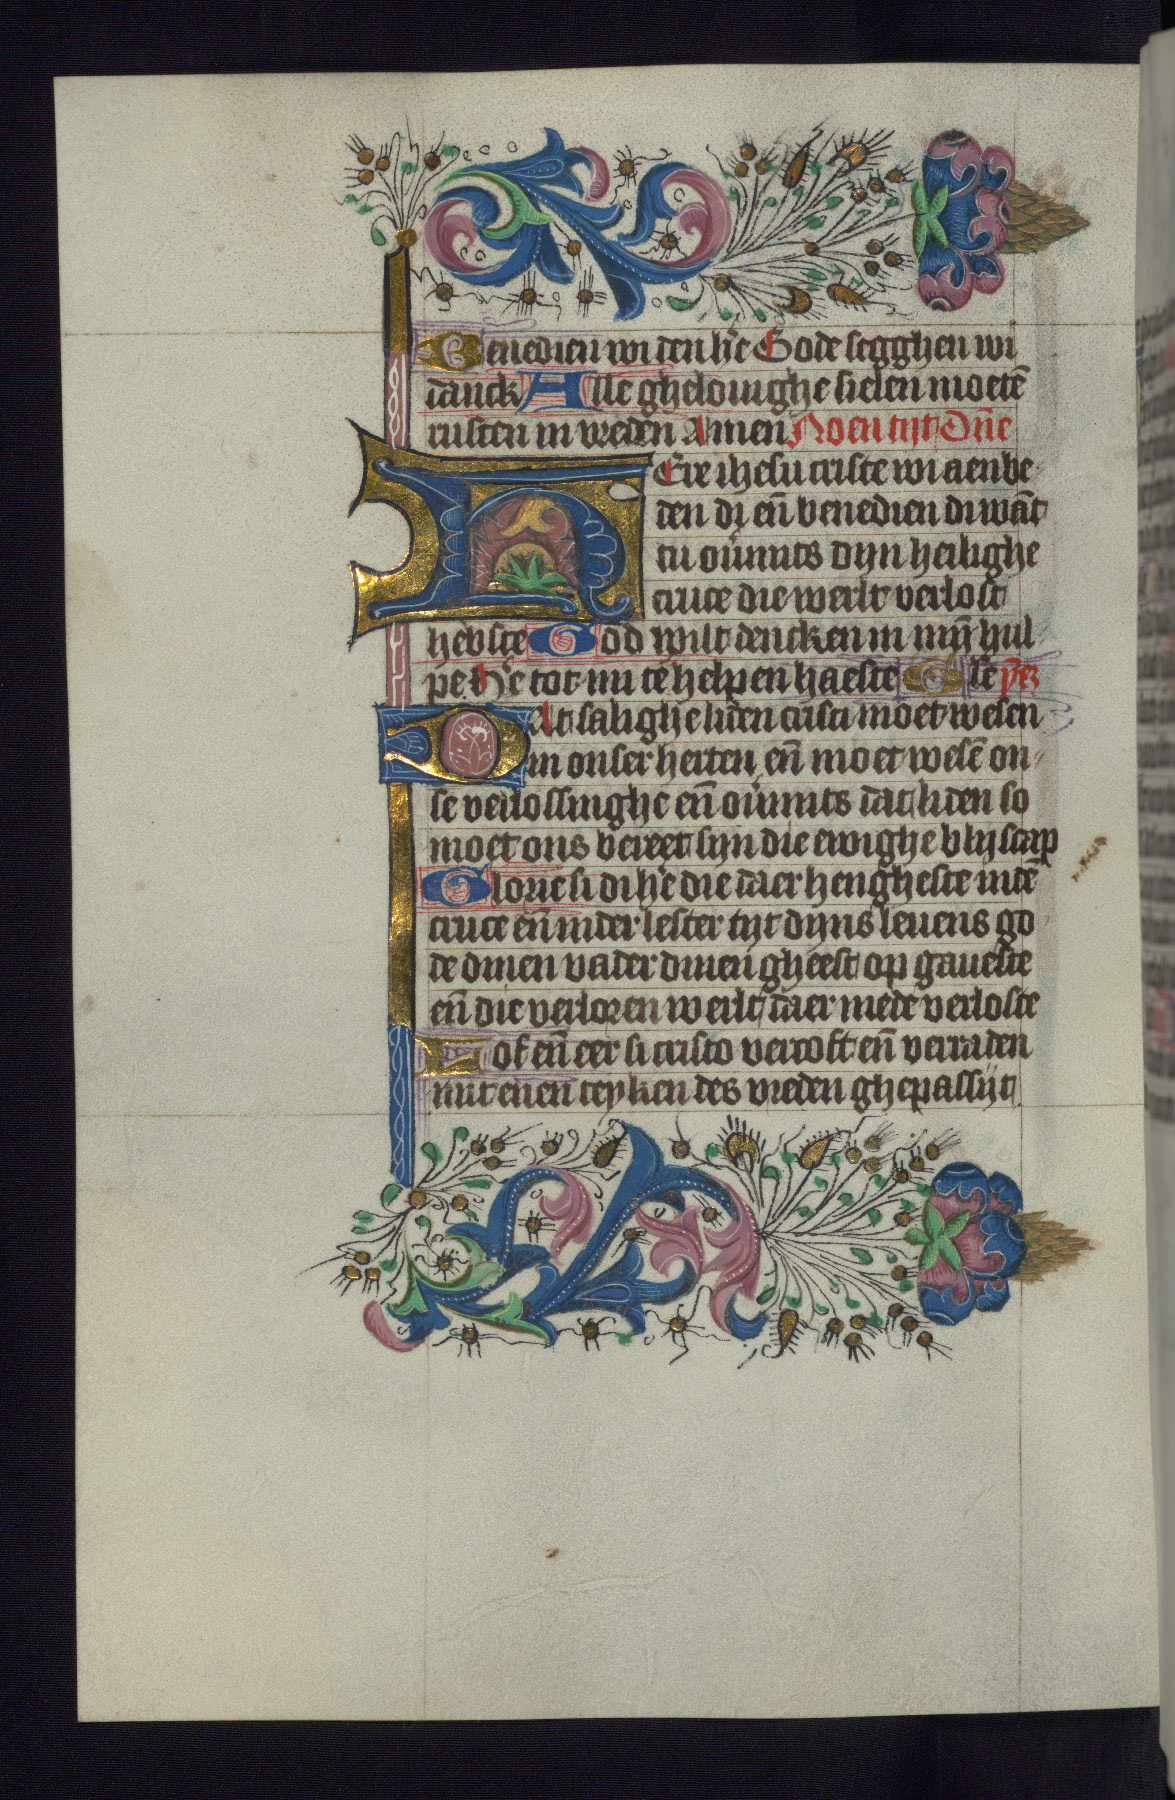 Benedien wi den h̄e Gode segghen wi
danck Alle ghelouighe sielen moetē
rusten in vreden Amen Noen tijt Dn̄e
HEre ihesu criste wi aenbe
den di en̄ benedien di wāt
tu ouṁits dijn heilighe
cruce die werlt verlost
hebste God wilt dencken in mijn̄ hul
pe H̄e tot mi te helpen haeste Glīe p̄ez
DAt salighe liden cristi moet wesen
in onser herten en̄ moet wesē on
se verlossinghe en̄ ouṁits dat liden so
moet ons bereet sijn die ewighe blijscap
Glorie si di h̄e die daer hengheste indē
cruce en̄ in der lester tijt dijns leuens go
de dinen vader dinen gheest op gaueste
en̄ die verloren werlt daer mede verloste
Lof en̄ eer si cristo vercoft en̄ verraden
mit enen teyken des vreden ghepassijt